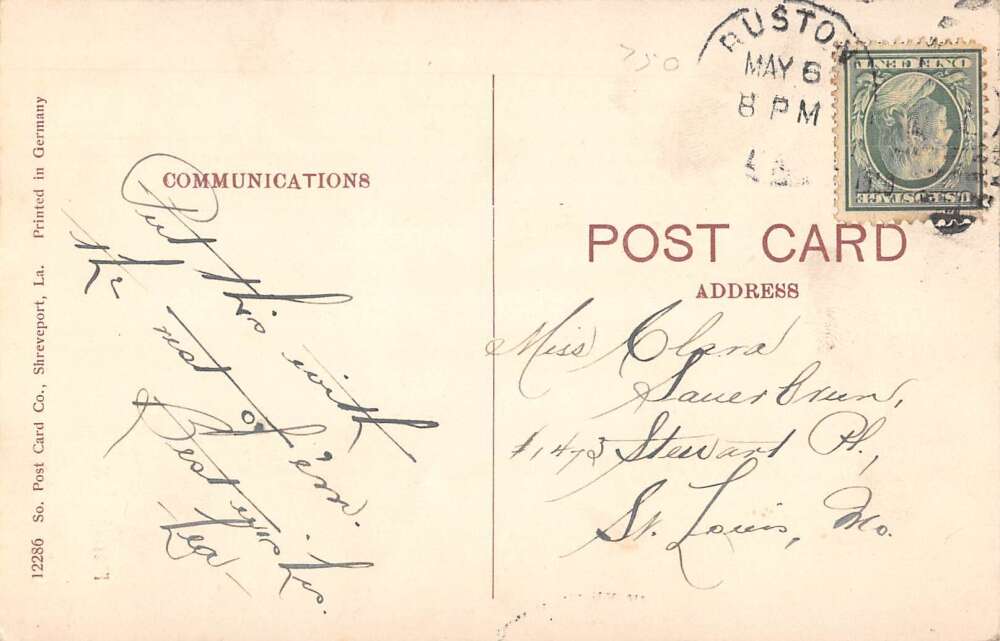 RUSTON
MAY 6
8 PM
LA.
750
ONE CENT
U.S. POSTAGE
12286 So. Post Card Co., Shreveport, La. Printed in Germany
COMMUNICATIONS
Put this with
the rest of 'em.
Best wishes.
Lea -
POST CARD
ADDRESS
Miss Clara
Sauerbrun,
#1473 Stewart Pl.,
St. Louis, Mo.